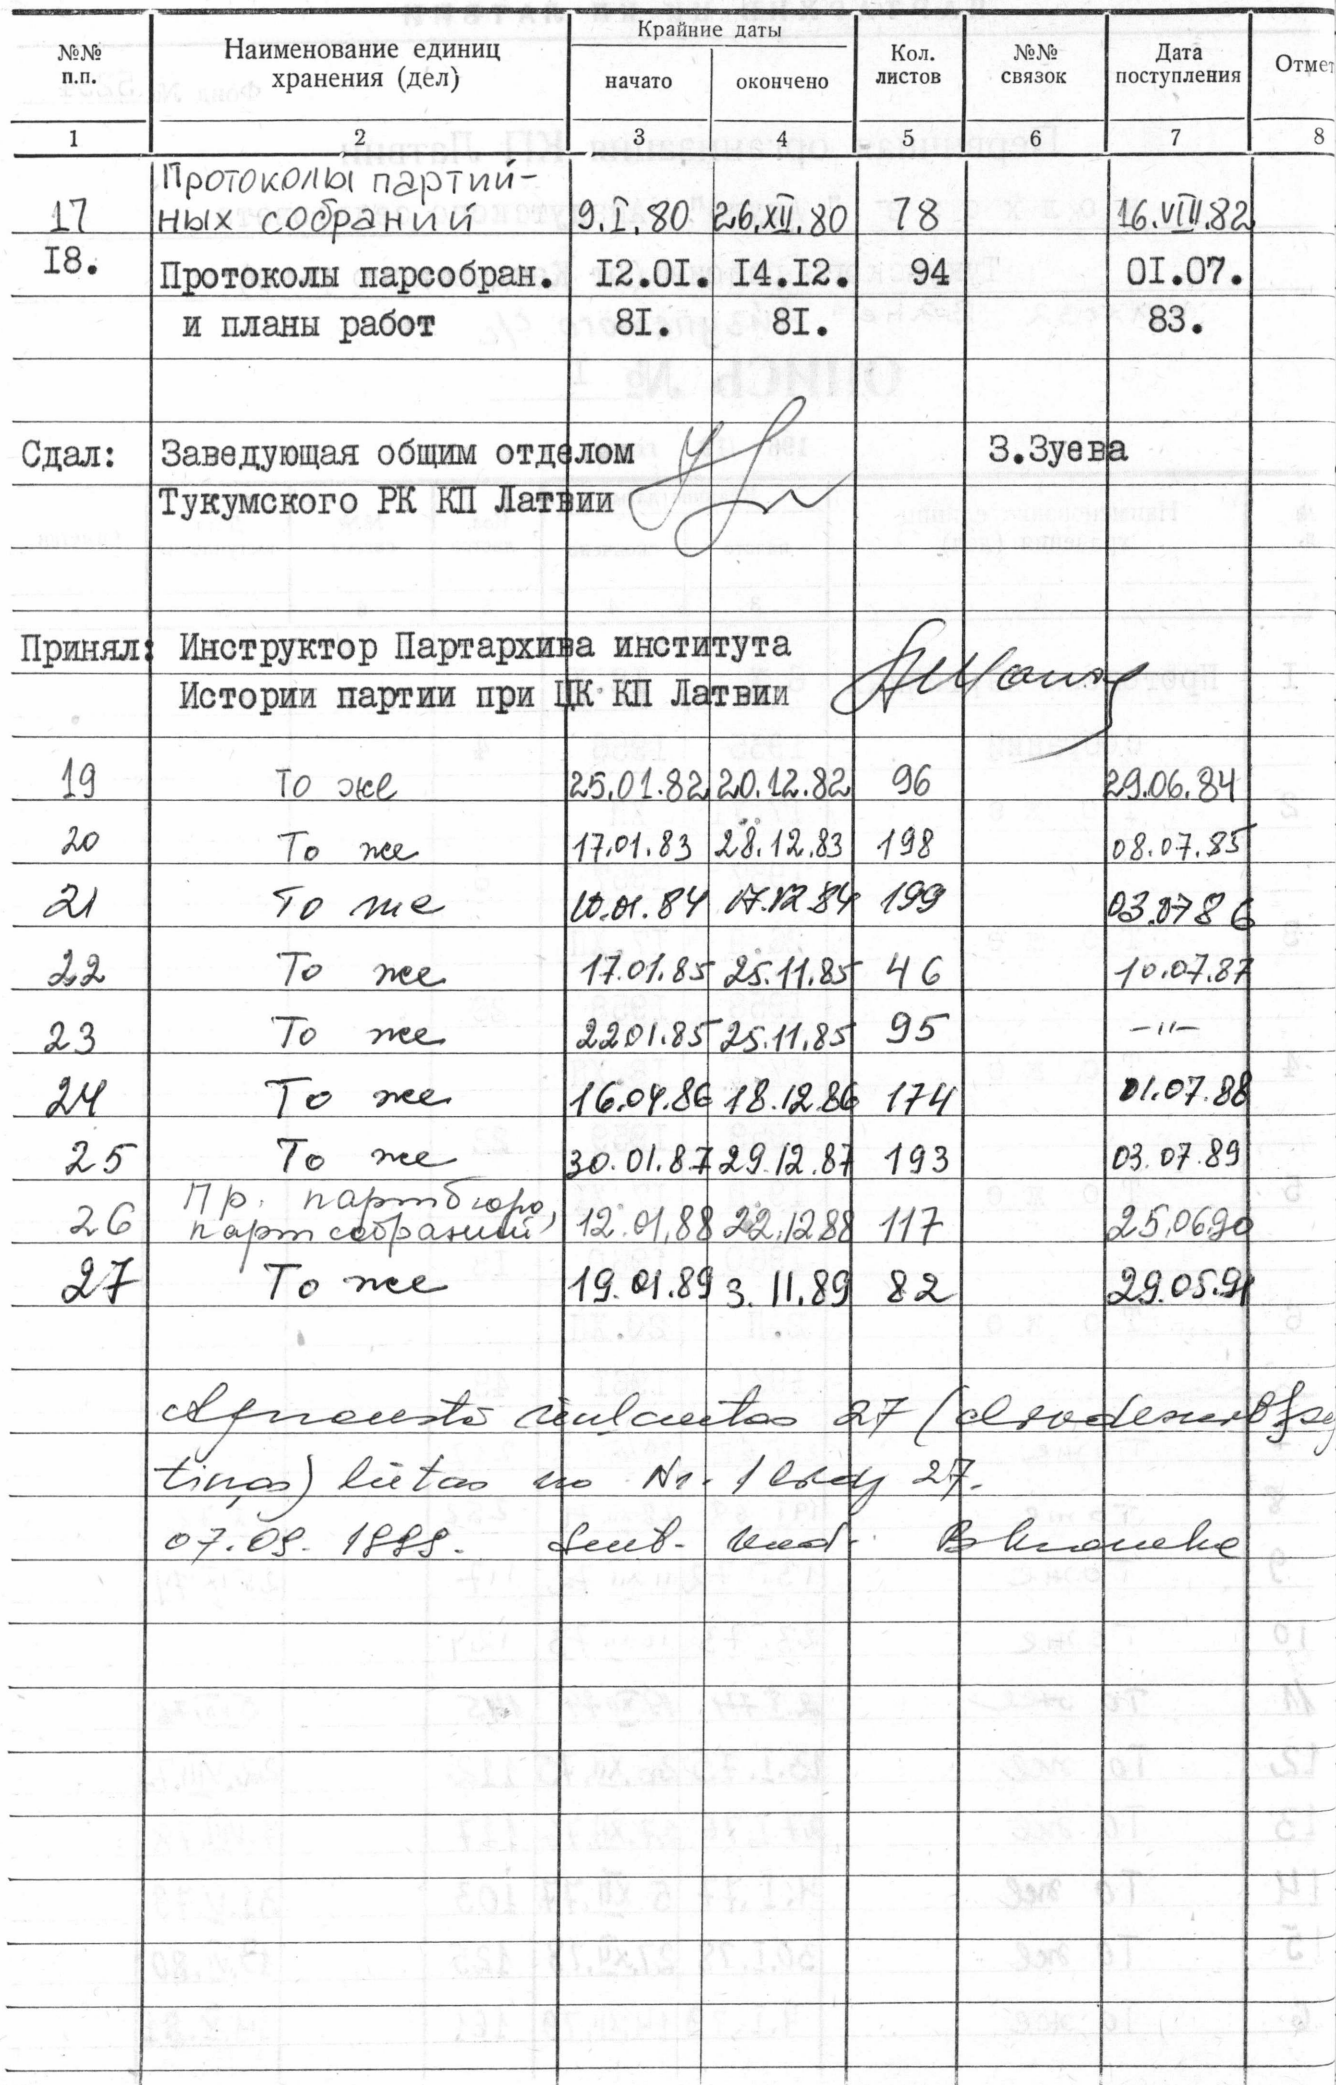 №№ п.п. Наименование единиц хранения (дел) Крайние даты начато окончено Кол. листов №№ связок Дата поступления Отмет
1 2 3 4 5 6 7 8
Протоколы партий-
17 ных собраний 9.I.80 26.XII.80 78 16.VIII.82
18. Протоколы парсобран. 12.01. 14.12. 94 01.07.
и планы работ 81. 81. 83.
Сдал: Заведующая общим отделом З.Зуева
Тукумского РК КП Латвии
Принял: Инструктор Партархива института
Истории партии при ЦК КП Латвии
19 То же 25.01.82 20.12.82 96 29.06.84
20 То же 17.01.83 28.12.83 198 08.07.85
21 То же 10.01.84 17.12.84 199 03.07 86
22 То же 17.01.85 25.11.85 46 10.07.87
23 То же 22.01.85 25.11.85 95 -"-
24 То же 16.04.86 18.12.86 174 01.07.88
25 То же 30.01.87 29.12.87 193 03.07.89
Пр. партбюро,
26 партсобраний 12.01.88 22.12.88 117 25.06.90
27 То же 19.01.89 3.11.89 82 29.05.91
27
tiņas) lietas no Nr. 1 līdz 27.
07.09. 1999.